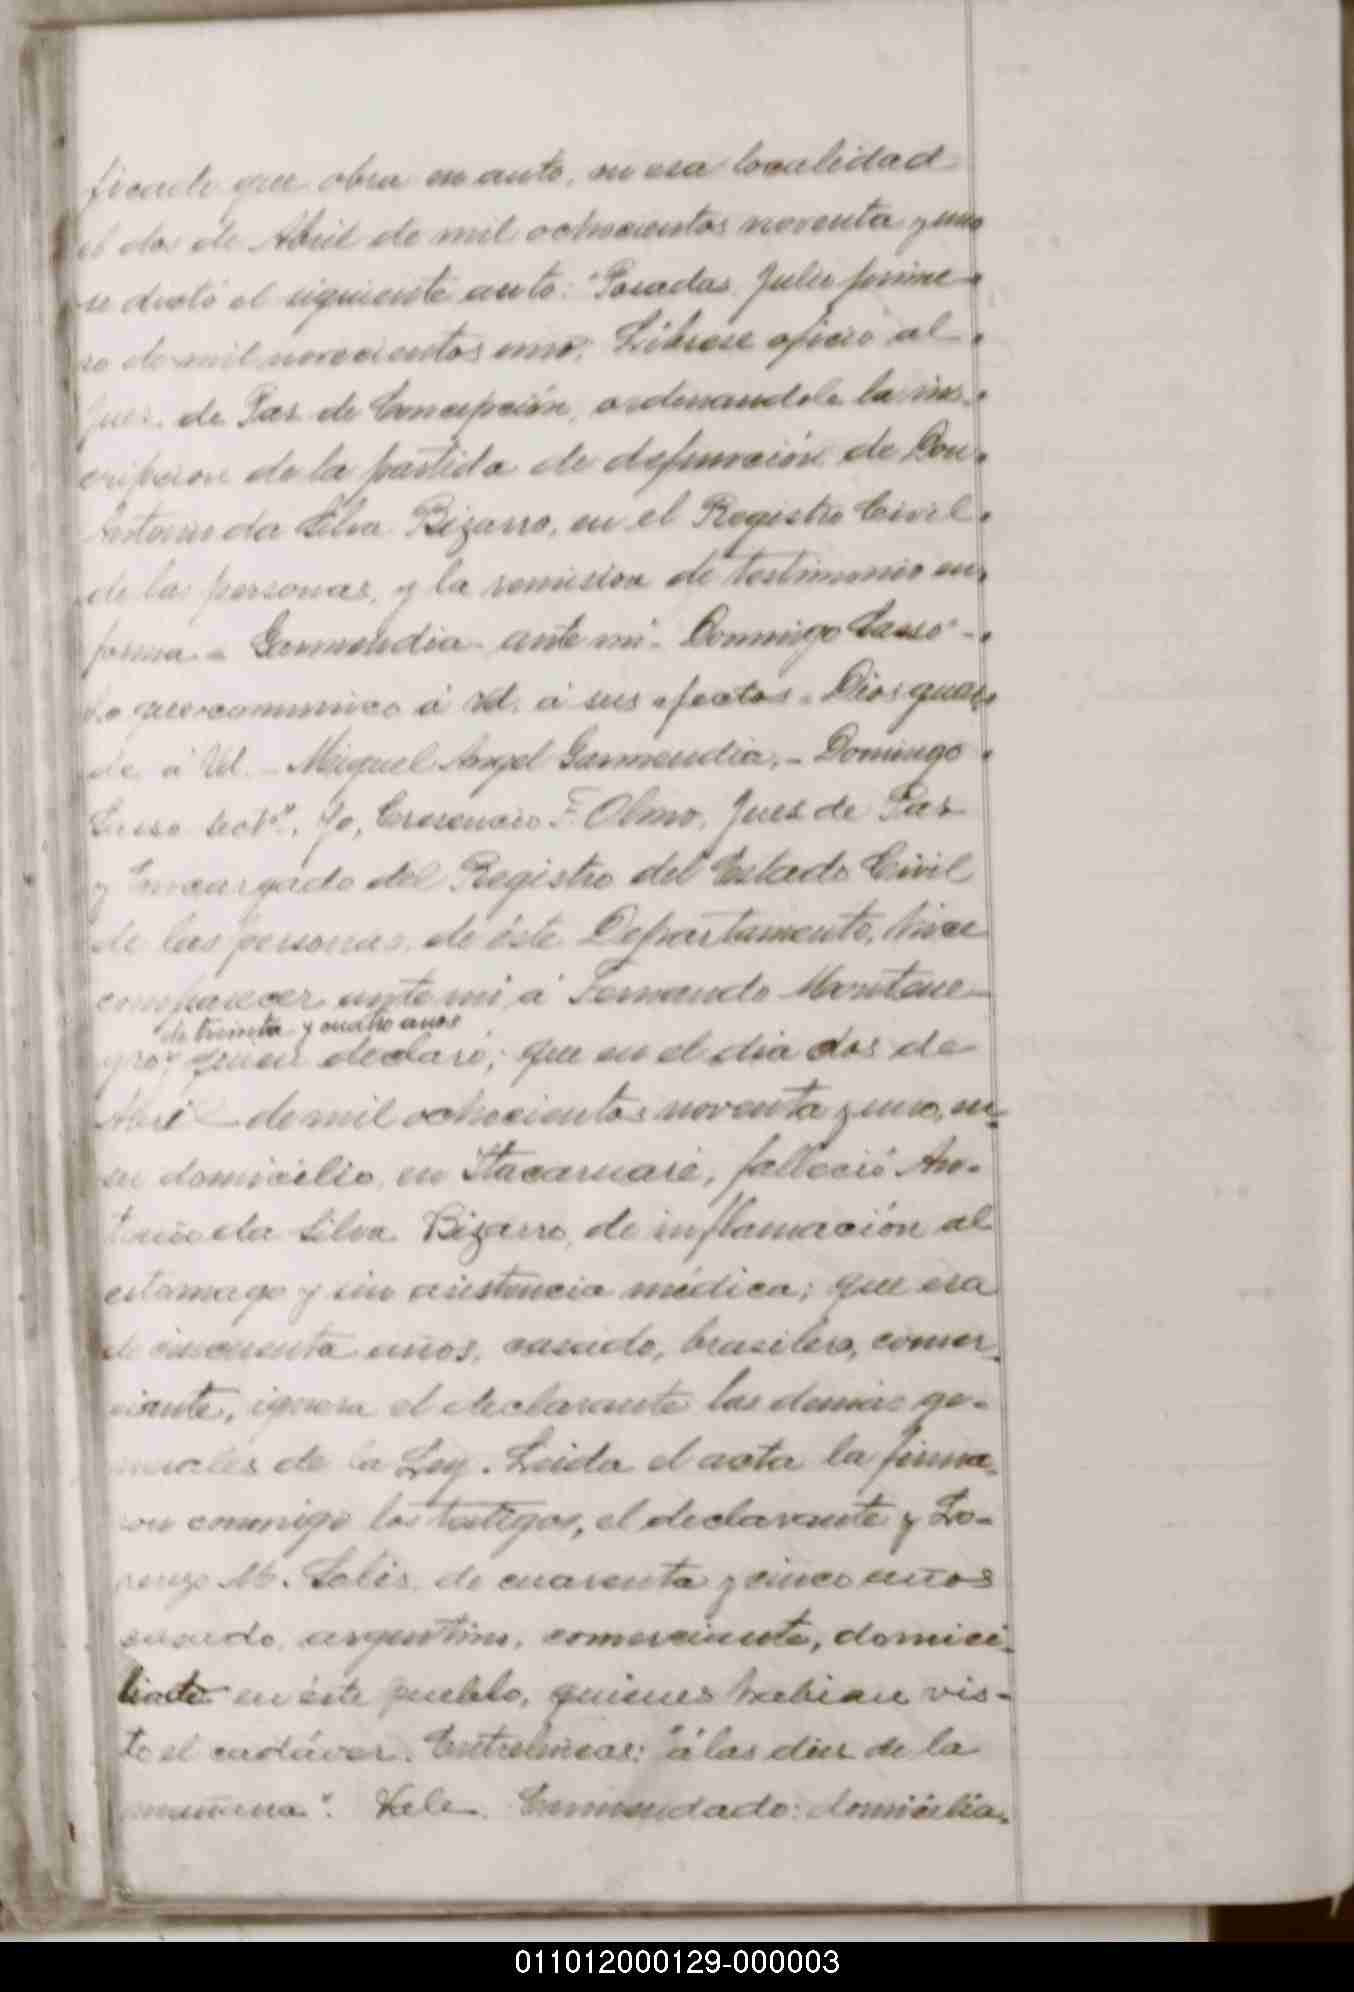 ficado que obra en auto, en esa localidad
el dos de Abril de mil ochocientos noventa y uno
se dictó el siguiente auto: "Posadas, Julio prime-
ro de mil novecientos uno. Líbrese oficio al
Juez de Paz de Concepción, ordenandole la ins-
cripcion de la partida de defunción de Don
Antonio da Silva Bizarro, en el Registro Civil
de las personas, y la remision de testimonio en
forma - Garmendia - ante mi - Domingo Sasso -
Lo que comunico á Vd. á sus efectos - Dios guar-
de á Vd. - Miguel Angel Garmendia, - Domingo
Sasso Secrº. Yo, Cresencio F. Olmo, Juez de Paz
y Encargado del Registro del Estado Civil
de las personas, de éste Departamento, hice
comparecer ante mi, á Fernando Montene-
"de treinta y cuatro años
gro" quien declaró; que en el dia dos de
Abril de mil ochocientos noventa y uno, en
su domicilio, en Itacaruaré, falleció An-
tonio da Silva Bizarro, de inflamación al
estomago y sin asistencia médica; que era
de cincuenta años, casado, brasilero, comer-
ciante, ignora el declarante las demas ge-
nerales de la Ley. Leida el acta la firma-
ron conmigo los testigos, el declarante y Lo-
renzo M. Solis, de cuarenta y cinco años
casado, argentino, comerciante, domici-
liado en éste pueblo, quienes habian vis-
to el cadáver. Entrelineas: "á las diez de la
mañana". Vale. Enmendado: domicilia-
011012000129-000003